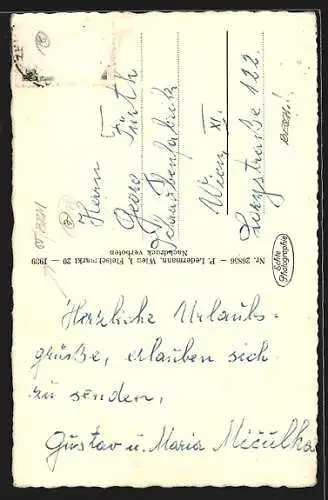 Herrn
Georg Fürth
Schraubenfabrik
Wien XI.
Lorystraße 122.
Nr. 26856 – P. Ledermann, Wien I, Fleischmarkt 20 – 1939
Nachdruck verboten
Echte
Photographie
Herzliche Urlaubs-
grüße, erlauben sich
zu senden,
Gustav u. Maria Mičulka